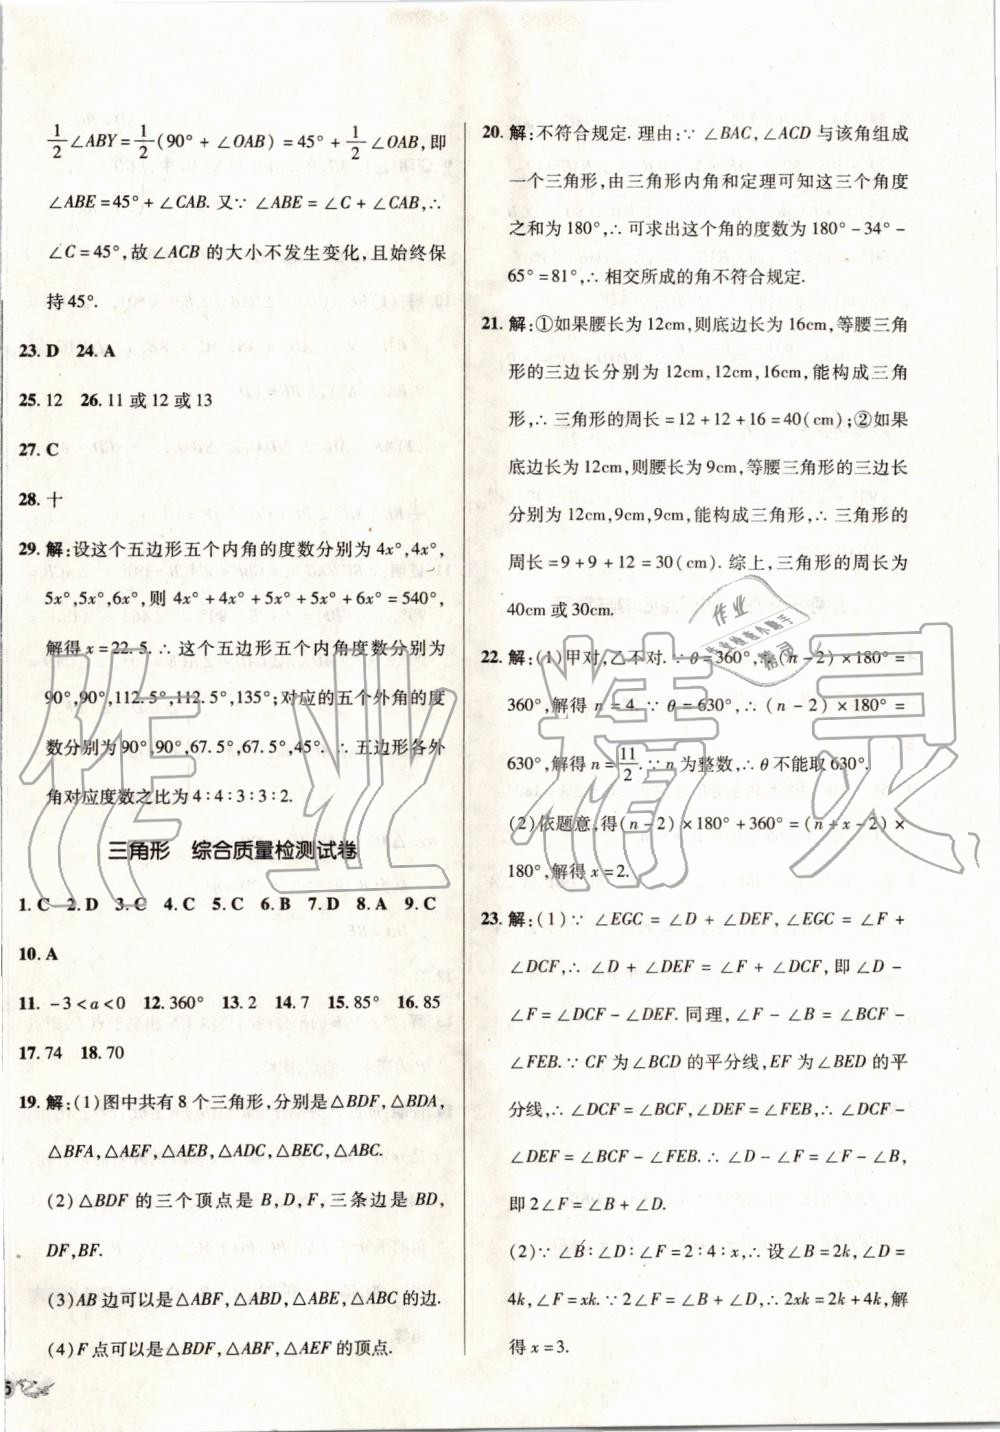 1/2∠ABY=1/2(90°+∠OAB)=45°+1/2∠OAB,即
∠ABE=45°+∠CAB. 又∵∠ABE=∠C+∠CAB,∴
∠C=45°,故∠ACB的大小不发生变化,且始终保
持45°.
23. D 24. A
25. 12 26. 11或12或13
27. C
28. 十
29. 解:设这个五边形五个内角的度数分别为4x°,4x°,
5x°,5x°,6x°,则4x°+4x°+5x°+5x°+6x°=540°,
解得x=22.5. ∴这个五边形五个内角度数分别为
90°,90°,112.5°,112.5°,135°;对应的五个外角的度
数分别为90°,90°,67.5°,67.5°,45°. ∴五边形各外
角对应度数之比为4:4:3:3:2.
三角形 综合质量检测试卷
1. C 2. D 3. C 4. C 5. C 6. B 7. D 8. A 9. C
10. A
11. -3<a<0 12. 360° 13. 2 14. 7 15. 85° 16. 85
17. 74 18. 70
19. 解:(1)图中共有8个三角形,分别是△BDF,△BDA,
△BFA,△AEF,△AEB,△ADC,△BEC,△ABC.
(2)△BDF的三个顶点是B,D,F,三条边是BD,
DF,BF.
(3)AB边可以是△ABF,△ABD,△ABE,△ABC的边.
(4)F点可以是△BDF,△ABF,△AEF的顶点.
20. 解:不符合规定. 理由:∵∠BAC,∠ACD与该角组成
一个三角形,由三角形内角和定理可知这三个角度
之和为180°,∴可求出这个角的度数为180°-34°-
65°=81°,∴相交所成的角不符合规定.
21. 解:①如果腰长为12cm,则底边长为16cm,等腰三角
形的三边长分别为12cm,12cm,16cm,能构成三角
形,∴三角形的周长=12+12+16=40(cm);②如果
底边长为12cm,则腰长为9cm,等腰三角形的三边长
分别为12cm,9cm,9cm,能构成三角形,∴三角形的
周长=9+9+12=30(cm). 综上,三角形的周长为
40cm或30cm.
22. 解:(1)甲对,乙不对. ∵θ=360°,∴(n-2)×180°=
360°,解得n=4. ∵θ=630°,∴(n-2)×180°=
630°,解得n=11/2. ∵n为整数,∴θ不能取630°.
(2)依题意,得(n-2)×180°+360°=(n+x-2)×
180°,解得x=2.
23. 解:(1)∵∠EGC=∠D+∠DEF,∠EGC=∠F+
∠DCF,∴∠D+∠DEF=∠F+∠DCF,即∠D-
∠F=∠DCF-∠DEF. 同理,∠F-∠B=∠BCF-
∠FEB. ∵CF为∠BCD的平分线,EF为∠BED的平
分线,∴∠DCF=∠BCF,∠DEF=∠FEB,∴∠DCF-
∠DEF=∠BCF-∠FEB. ∴∠D-∠F=∠F-∠B,
即2∠F=∠B+∠D.
(2)∵∠B:∠D:∠F=2:4:x,∴设∠B=2k,∠D=
4k,∠F=xk. ∵2∠F=∠B+∠D,∴2xk=2k+4k,解
得x=3.
作业精灵